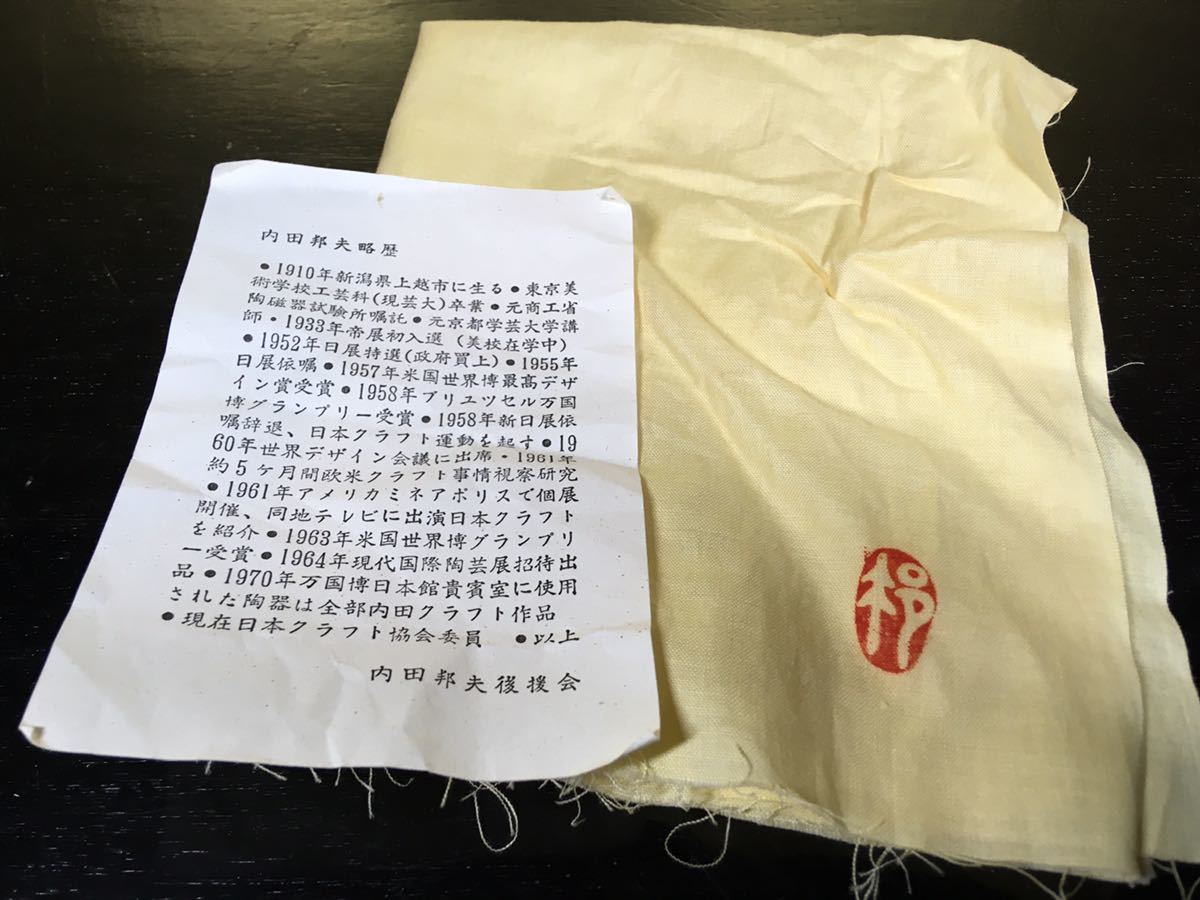 内田邦夫略歴
●1910年新潟県上越市に生る●東京美
術学校工芸科(現芸大)卒業●元商工省
陶磁器試験所嘱託●元京都学芸大学講
師・1933年帝展初入選 (美校在学中)
●1952年日展特選(政府買上)●1955年
日展依嘱●1957年米国世界博最高デザ
イン賞受賞●1958年ブリユツセル万国
博グランプリー受賞●1958年新日展依
嘱辞退、日本クラフト運動を起す●19
60年世界デザイン会議に出席・1961年
約5ケ月間欧米クラフト事情視察研究
●1961年アメリカミネアポリスで個展
開催、同地テレビに出演日本クラフト
を紹介●1963年米国世界博グランプリ
ー受賞●1964年現代国際陶芸展招待出
品●1970年万国博日本館貴賓室に使用
された陶器は全部内田クラフト作品
●現在日本クラフト協会委員 ●以上
内田邦夫後援会